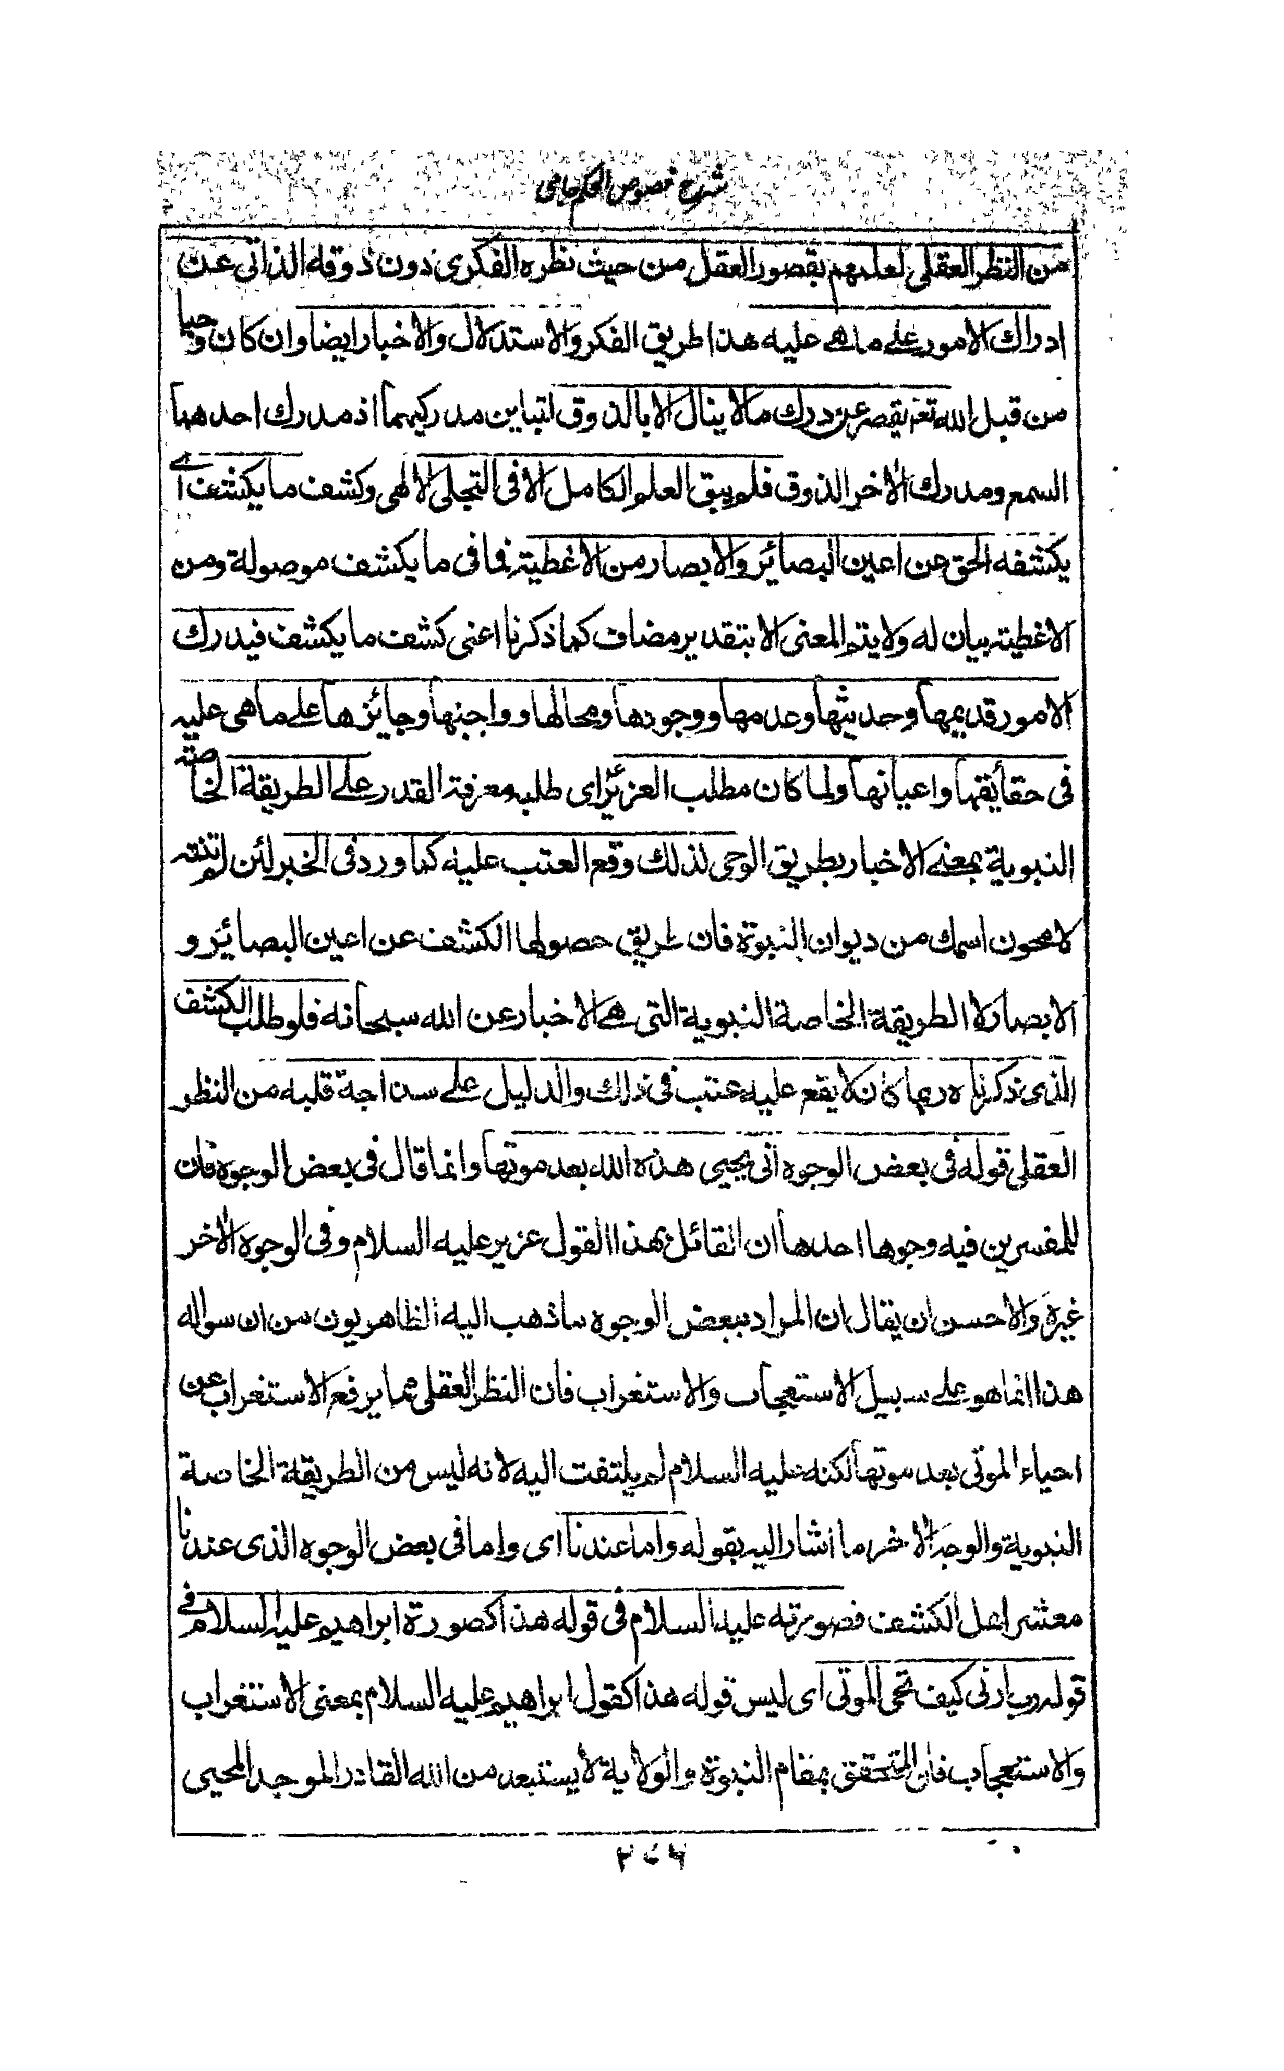 شرح فصوص الحكم جامى
من النظر العقلى لعلمهم بقصور العقل من حيث نظره الفكرى دون ذوقه الذاتى عن
ادراك الامور على ما هى عليه هذا طريق الفكر والاستدلال والاخبار ايضا وان كان وحيا
من قبل الله تعم يقصر عن درك ما لا ينال الا بالذوق لتباين مدركيهما اذ مدرك احدهما
السمع ومدرك الاخر الذوق فلم يبق العلم الكامل الا فى التجلى الالهى وكشف ما يكشف اى
يكشفه الحق عن اعين البصائر والابصار من الاغطية فما فى ما يكشف موصولة ومن
الاغطية بيان له ولا يتم المعنى الا بتقدير مضاف كما ذكرنا اعنى كشف ما يكشف فيدرك
الامور قديمها وحديثها وعدمها ووجودها ومحالها وواجبها وجائزها على ما هى عليه
فى حقائقها واعيانها ولما كان مطلب العزيز اى طلبه معرفة القدر على الطريقة الخاصة
النبوية بمعنى الاخبار بطريق الوحى لذلك وقع العتب عليه كما ورد فى الخبر لئن لم تنته
لامحون اسمك من ديوان النبوة فان طريق حصولها الكشف عن اعين البصائر و
الابصار لا الطريقة الخاصة النبوية التى هى الاخبار عن الله سبحانه فلو طلب الكشف
الذى ذكرناه ربما كان لا يقع عليه عتب فى ذلك والدليل على سذاجة قلبه من النظر
العقلى قوله فى بعض الوجوه انى يحيى هذه الله بعد موتها وانما قال فى بعض الوجوه فان
للمفسرين فيه وجوها احدها ان القائل بهذا القول عزير عليه السلام وفى الوجوه الاخر
غيره والاحسن ان يقال ان المراد ببعض الوجوه ما ذهب اليه الظاهريون من ان سواله
هذا انما هو على سبيل الاستعجاب والاستغراب فان النظر العقلى مما يرفع الاستغراب عن
احياء الموتى بعد موتها لكنه عليه السلام لم يلتفت اليه لانه ليس من الطريقة الخاصة
النبوية والوجه الاخر ما اشار اليه بقوله واما عندنا اى واما فى بعض الوجوه الذى عندنا
معشر اهل الكشف فصورته عليه السلام فى قوله هذا كصورة ابراهيم عليه السلام فى
قوله رب ارنى كيف تحى الموتى اى ليس قوله هذا كقول ابراهيم عليه السلام بمعنى الاستغراب
والاستعجاب فان المتحقق بمقام النبوة والولاية لا يستبعد من الله القادر الموجد المحيى